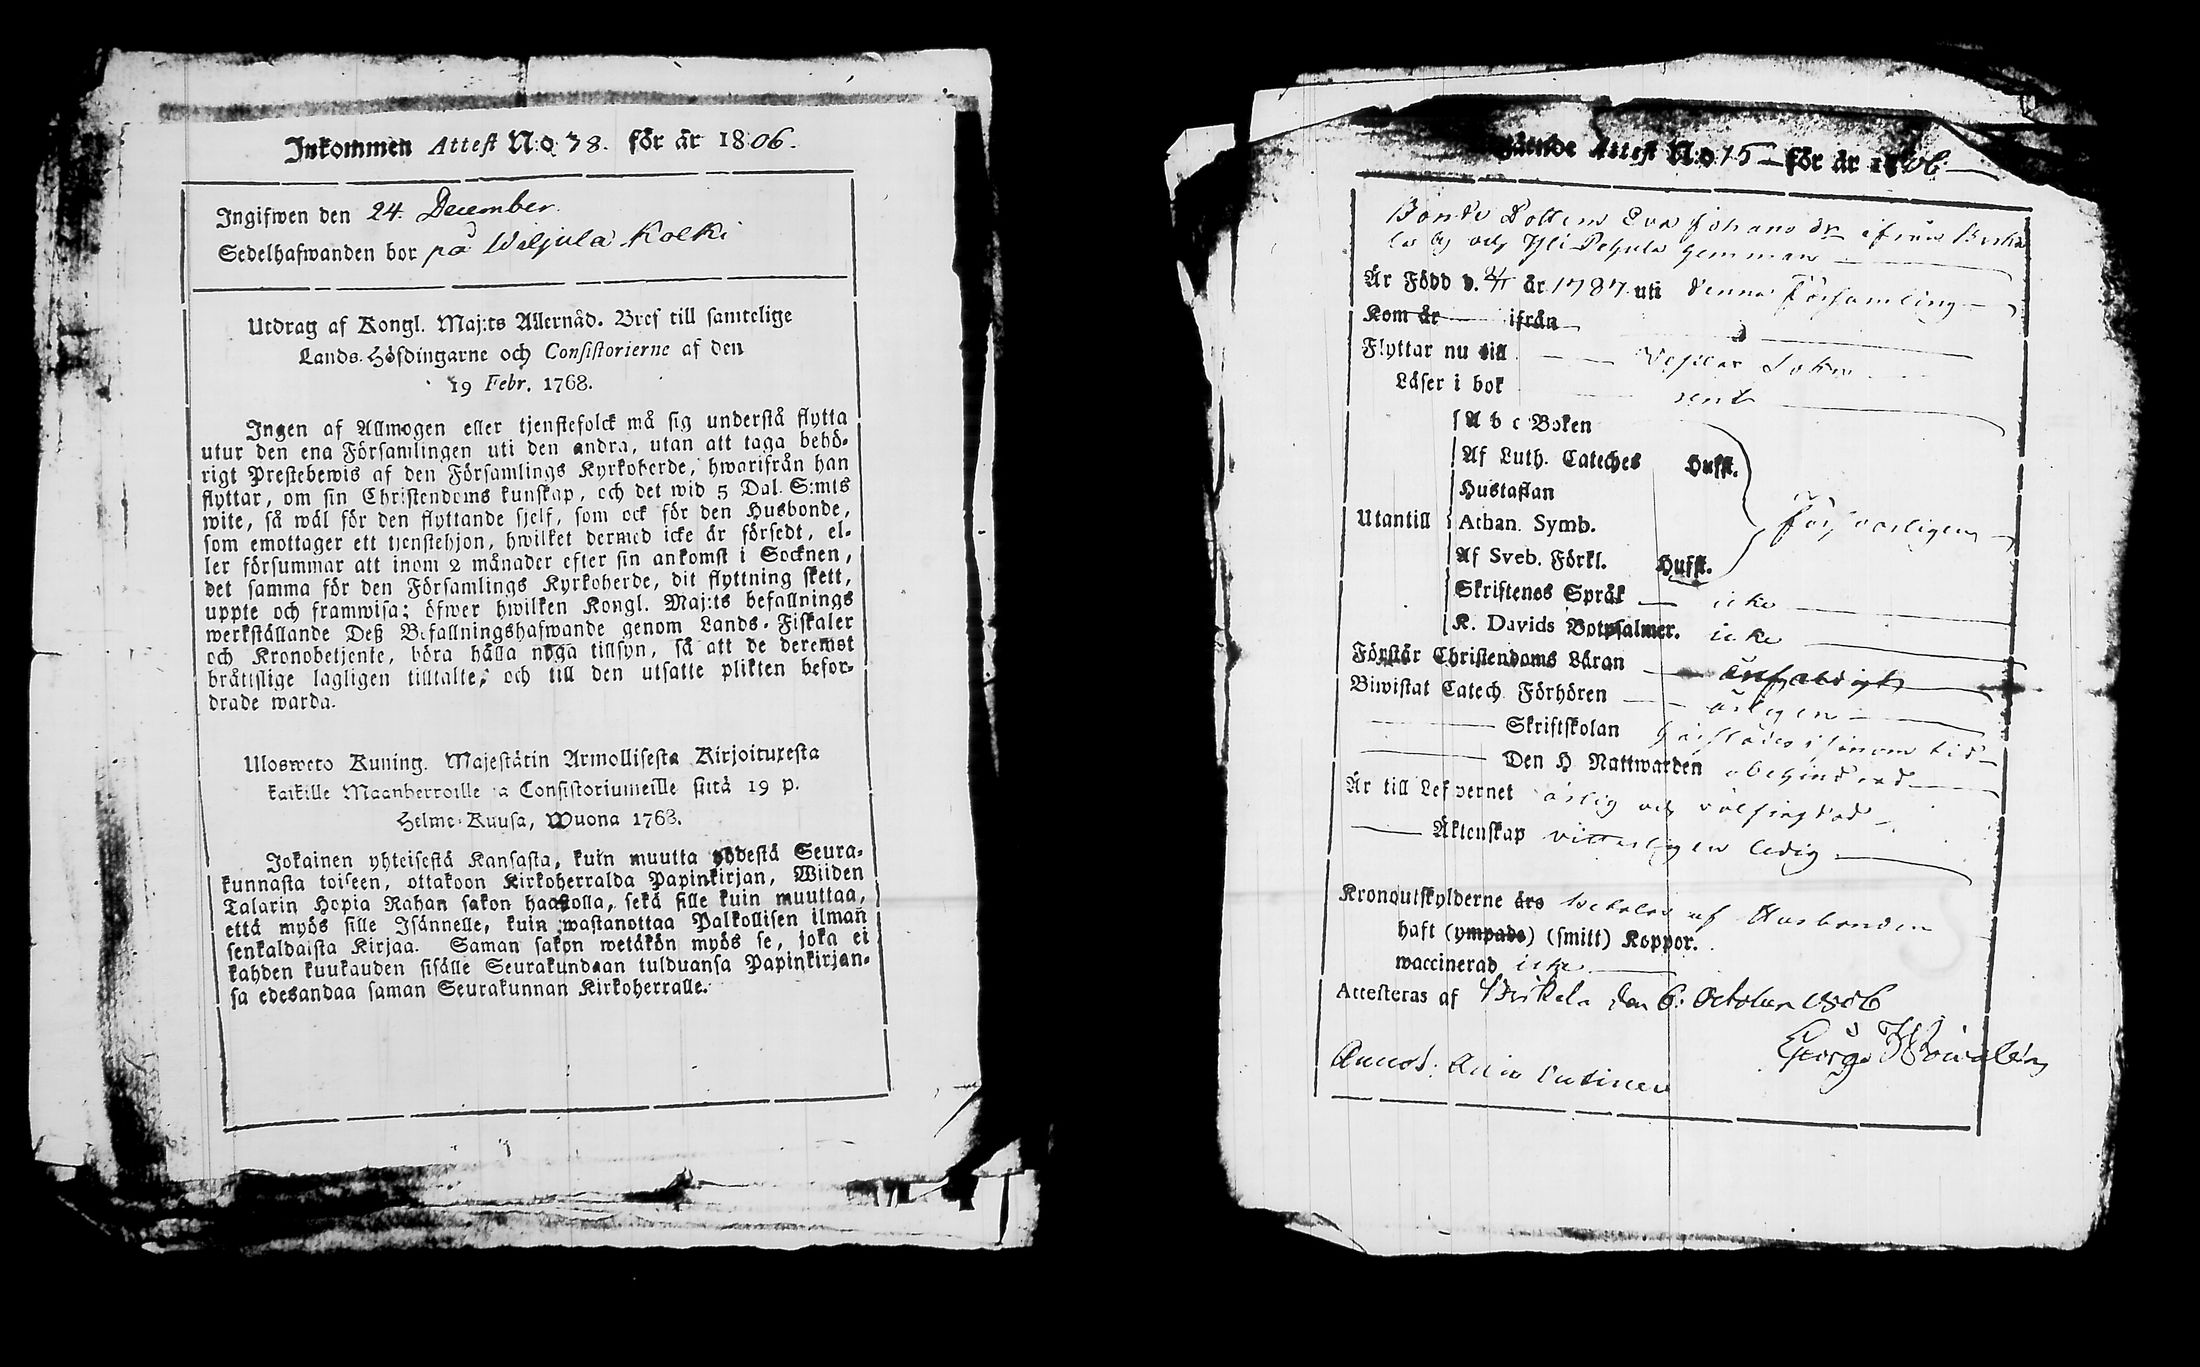 Inkommen Attest N:o 38. för år 1806.
Ingifwen den 24. December.
Sedelhafwanden bor på Weljula Kolki
Utdrag af Kongl. Maj:ts Allernåd. Bref till samtelige
Lands-Höfdingarne och Consistorierne af den
19 Febr. 1768.
Ingen af Allmogen eller tjenstefolck må sig understå flytta
utur den ena Församlingen uti den andra, utan att taga behö-
rigt Prestebewis af den Församlings Kyrkoherde, hwarifrån han
flyttar, om sin Christendoms kunskap, och det wid 5 Dal. S:mts
wite, så wäl för den flyttande sjelf, som ock för den Husbonde,
som emottager ett tjenstehjon, hwilket dermed icke är försedt, el-
ler försummar att inom 2 månader efter sin ankomst i Socknen,
det samma för den Församlings Kyrkoherde, dit flyttning skett,
uppte och framwisa; öfwer hwilken Kongl. Maj:ts befallnings
werkställande Deß Befallningshafwande genom Lands-Fiskaler
och Kronobetjente, böra hålla noga tillsyn, så att de deremot
bråttslige lagligen tilltalte, och till den utsatte plikten befor-
drade warda.
Ulosweto Kuning. Majestätin Armollisesta Kirjoituxesta
kaikille Maanherroille ja Consistoriumeille siitä 19 p.
Helme-Kuusa, Wuona 1768.
Jokainen yhteisestä Kansasta, kuin muutta yhdestä Seura-
kunnasta toiseen, ottakoon Kirkoherralda Papinkirjan, Wiiden
Talarin Hopia Rahan sakon haastolla, sekä sille kuin muuttaa,
että myös sille Isännelle, kuin wastanottaa Palkollisen ilman
senkaldaista Kirjaa. Saman sakon wetäkön myös se, joka ei
kahden kuukauden sisälle Seurakundaan tulduansa Papinkirjan-
sa edesandaa saman Seurakunnan Kirkoherralle.
gående Attest N:o 15 för år 1806
Bonde Dottern Eva Johans dr ifrån Birka
la by och Yli Pehula hemman
År Född d. år 1787 uti denna Församling
Kom år ifrån
Flyttar nu till Vesilax Sokn
Läser i bok rent
A b c Boken
Af Luth. Cateches Hufst.
Hustaflan
Utantill Athan. Symb. Försvarligen
Af Sveb. Förkl. Hufst.
Skriftenes Språk icke
K. Davids Botpsalmer. icke
Förstår Christendoms Läran enfaldigt
Biwistat Catech. Förhören årligen
Skriftskolan i sinom tid
Den H. Nattwarden obehindrad
Är till Lefwernet ärlig och välfrägdad
Äktenskap vitterligen ledig
Kronoutskylderne års betalas af Husbonden
haft (ympade) (smitt) Koppor.
waccinerad icke
Attesteras af Birkala den 6: October 1806
Georg
Annot.